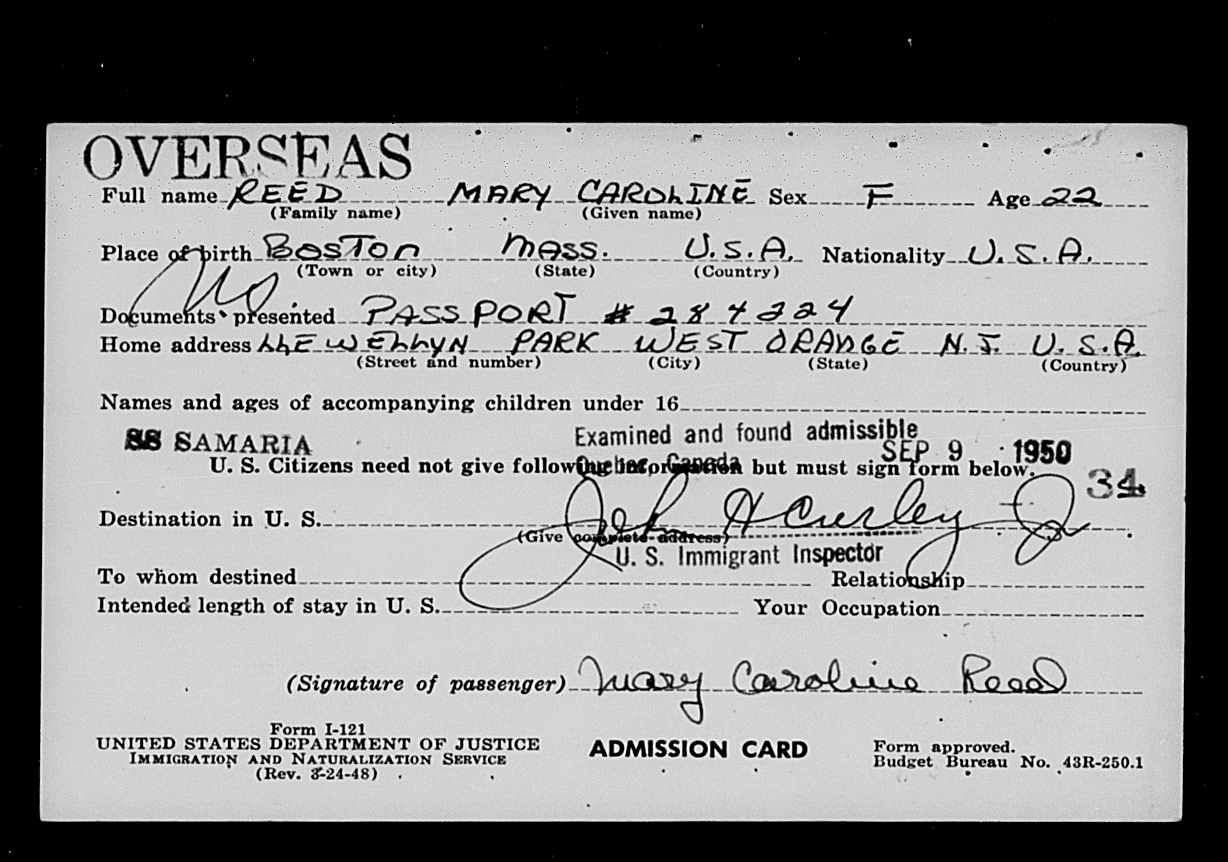 OVERSEAS
Full name REED MARY CAROLINE Sex F Age 22
(Family name) (Given name)
Place of birth BOSTON MASS. U.S.A. Nationality U.S.A.
(Town or city) (State) (Country)
Documents presented PASSPORT # 284224
Home address LLEWELLYN PARK WEST ORANGE N.J. U.S.A.
(Street and number) (City) (State) (Country)
Names and ages of accompanying children under 16
SS SAMARIA Examined and found admissible
Quebec, Canada SEP 9 1950
U. S. Citizens need not give following information but must sign form below.
34
Destination in U. S. John H Curley Jr
(Give complete address)
U. S. Immigrant Inspector
To whom destined Relationship
Intended length of stay in U. S. Your Occupation
(Signature of passenger) Mary Caroline Reed
Form I-121
UNITED STATES DEPARTMENT OF JUSTICE ADMISSION CARD Form approved.
IMMIGRATION AND NATURALIZATION SERVICE Budget Bureau No. 43R-250.1
(Rev. 3-24-48)